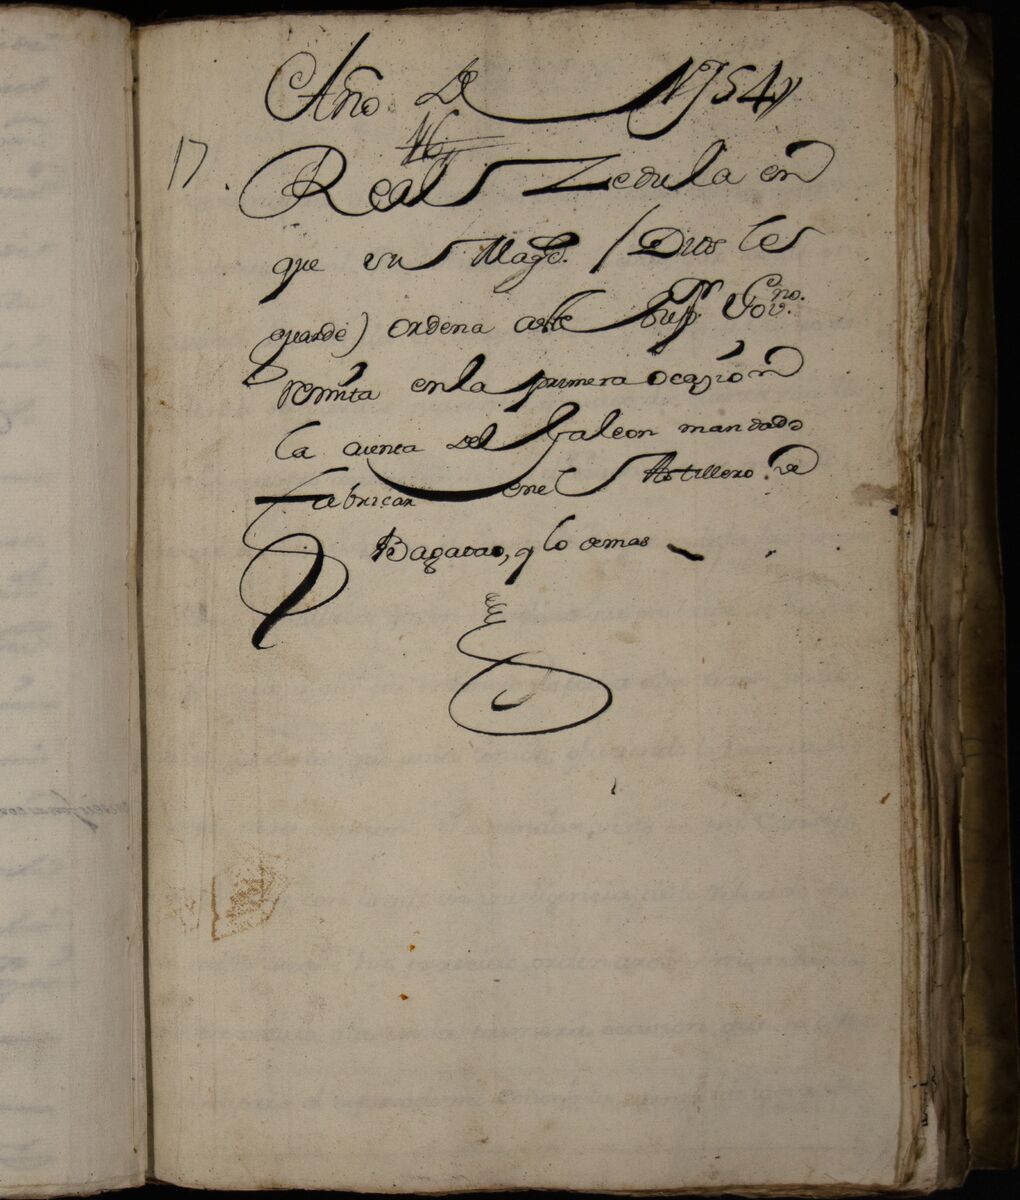 Año de 1754
16
17. Real Zedula en
que su Magd. (Dios le
guarde) ordena a este Supr. Govno.
remita en la primera ocazion
la cuenta del Galeon mandado
fabricar en el Astillero de
Bagatao, y lo demas